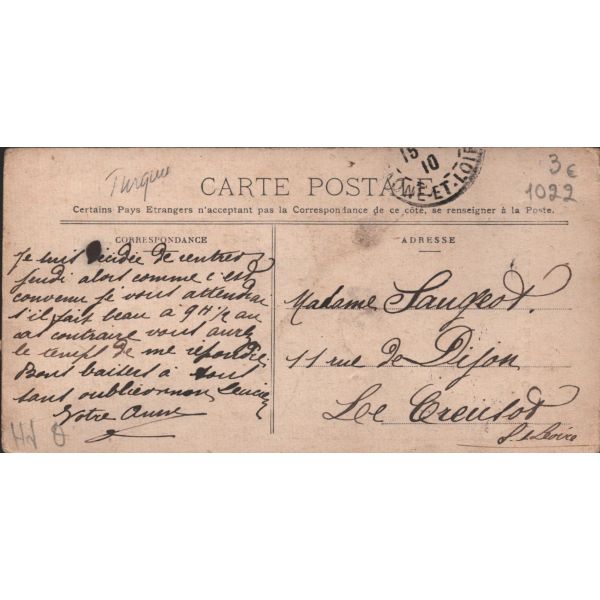 Turquie
15
10
NE-ET-LOIRE
3 €
1022
CARTE POSTALE
Certains Pays Etrangers n'acceptant pas la Correspondance de ce côté, se renseigner à la Poste.
CORRESPONDANCE
Je suis décidée de rentrer
jeudi alors comme c'est
convenu je vous attendrai
s'il fait beau à 9 H 1/2 au
cas contraire vous aurez
le temps de me répondre
Bons baisers à tous
sans oublier mon Lucien
Votre Anna
ADRESSE
Madame Saugeot.
11 rue de Dijon
Le Creusot
S & Loire